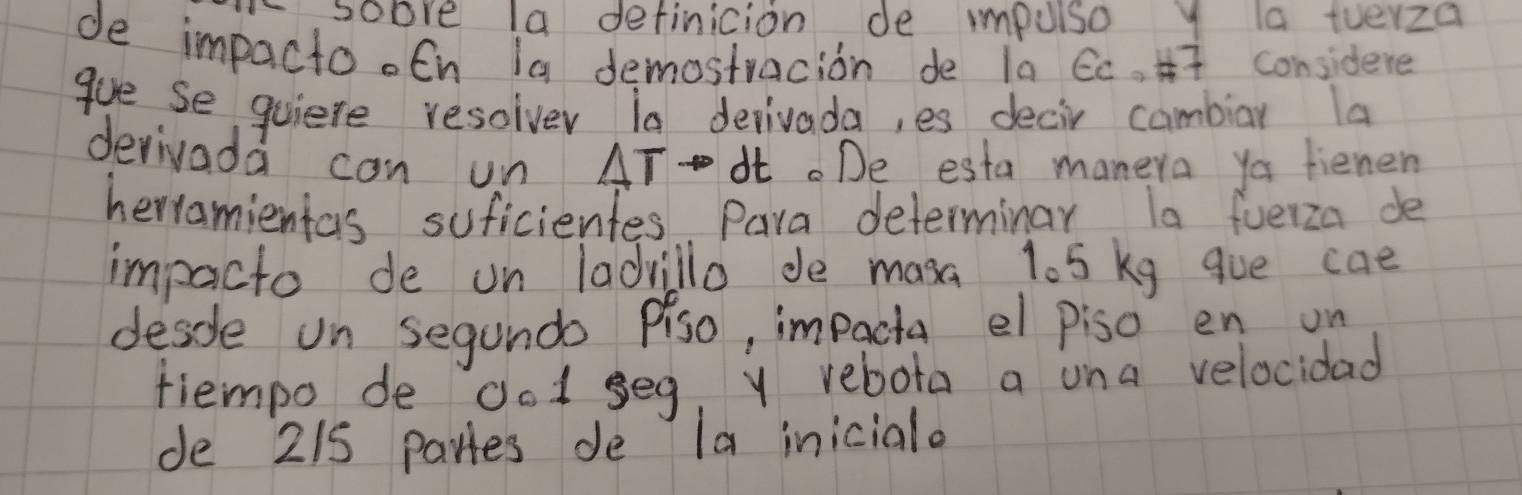 sobre la definición de impulso y la fuerza
de impacto. En la demostración de la Ec. #7 considere
que se quiere resolver la derivada, es decir cambiar la
derivada con un ΔT → dt. De esta manera ya tienen
herramientas suficientes para determinar la fuerza de
impacto de un ladrillo de masa 1.5 kg que cae
desde un segundo Piso, impacta el piso en un
tiempo de 0.1 seg y rebota a una velocidad
de 2/5 partes de la inicial.